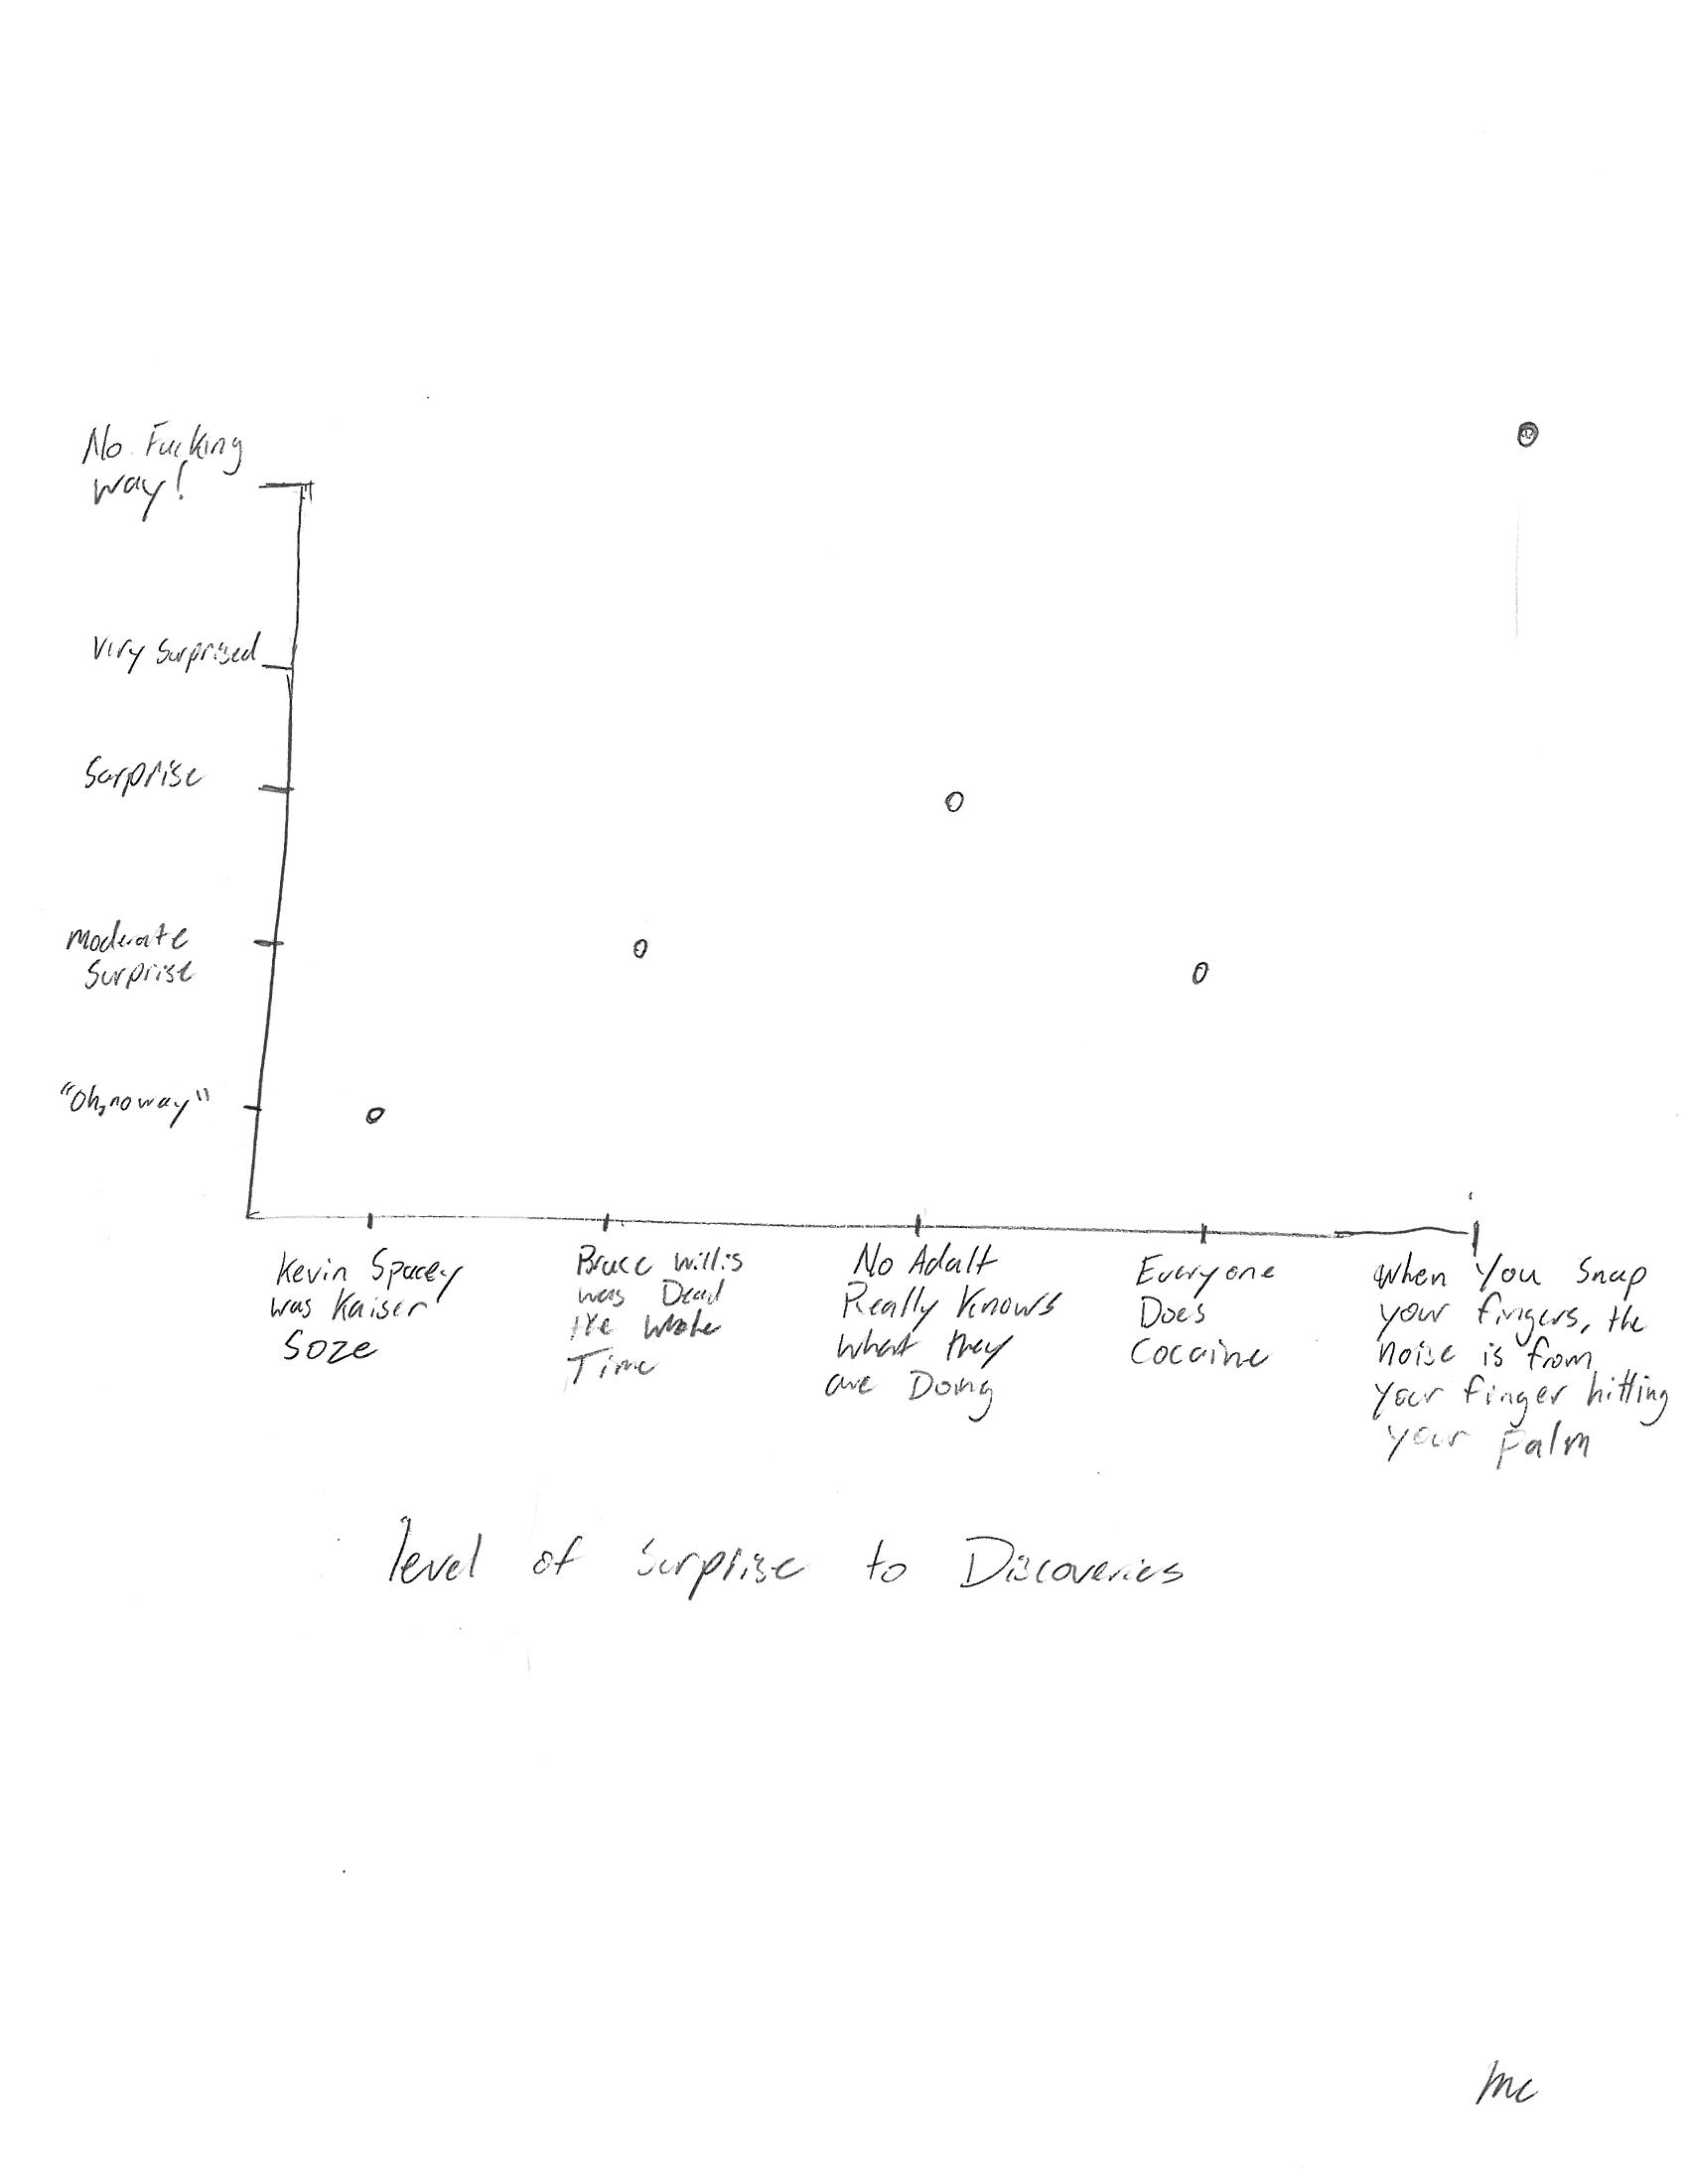 No Fucking
way!
Very Surprised
Surprise
Moderate
Surprise
"Oh, no way"
Kevin Spacey
was Kaiser
Soze
Bruce Willis
was Dead
the Whole
Time
No Adult
Really Knows
what they
are Doing
Everyone
Does
Cocaine
When You Snap
your fingers, the
noise is from
your finger hitting
your palm
level of Surprise to Discoveries
mc